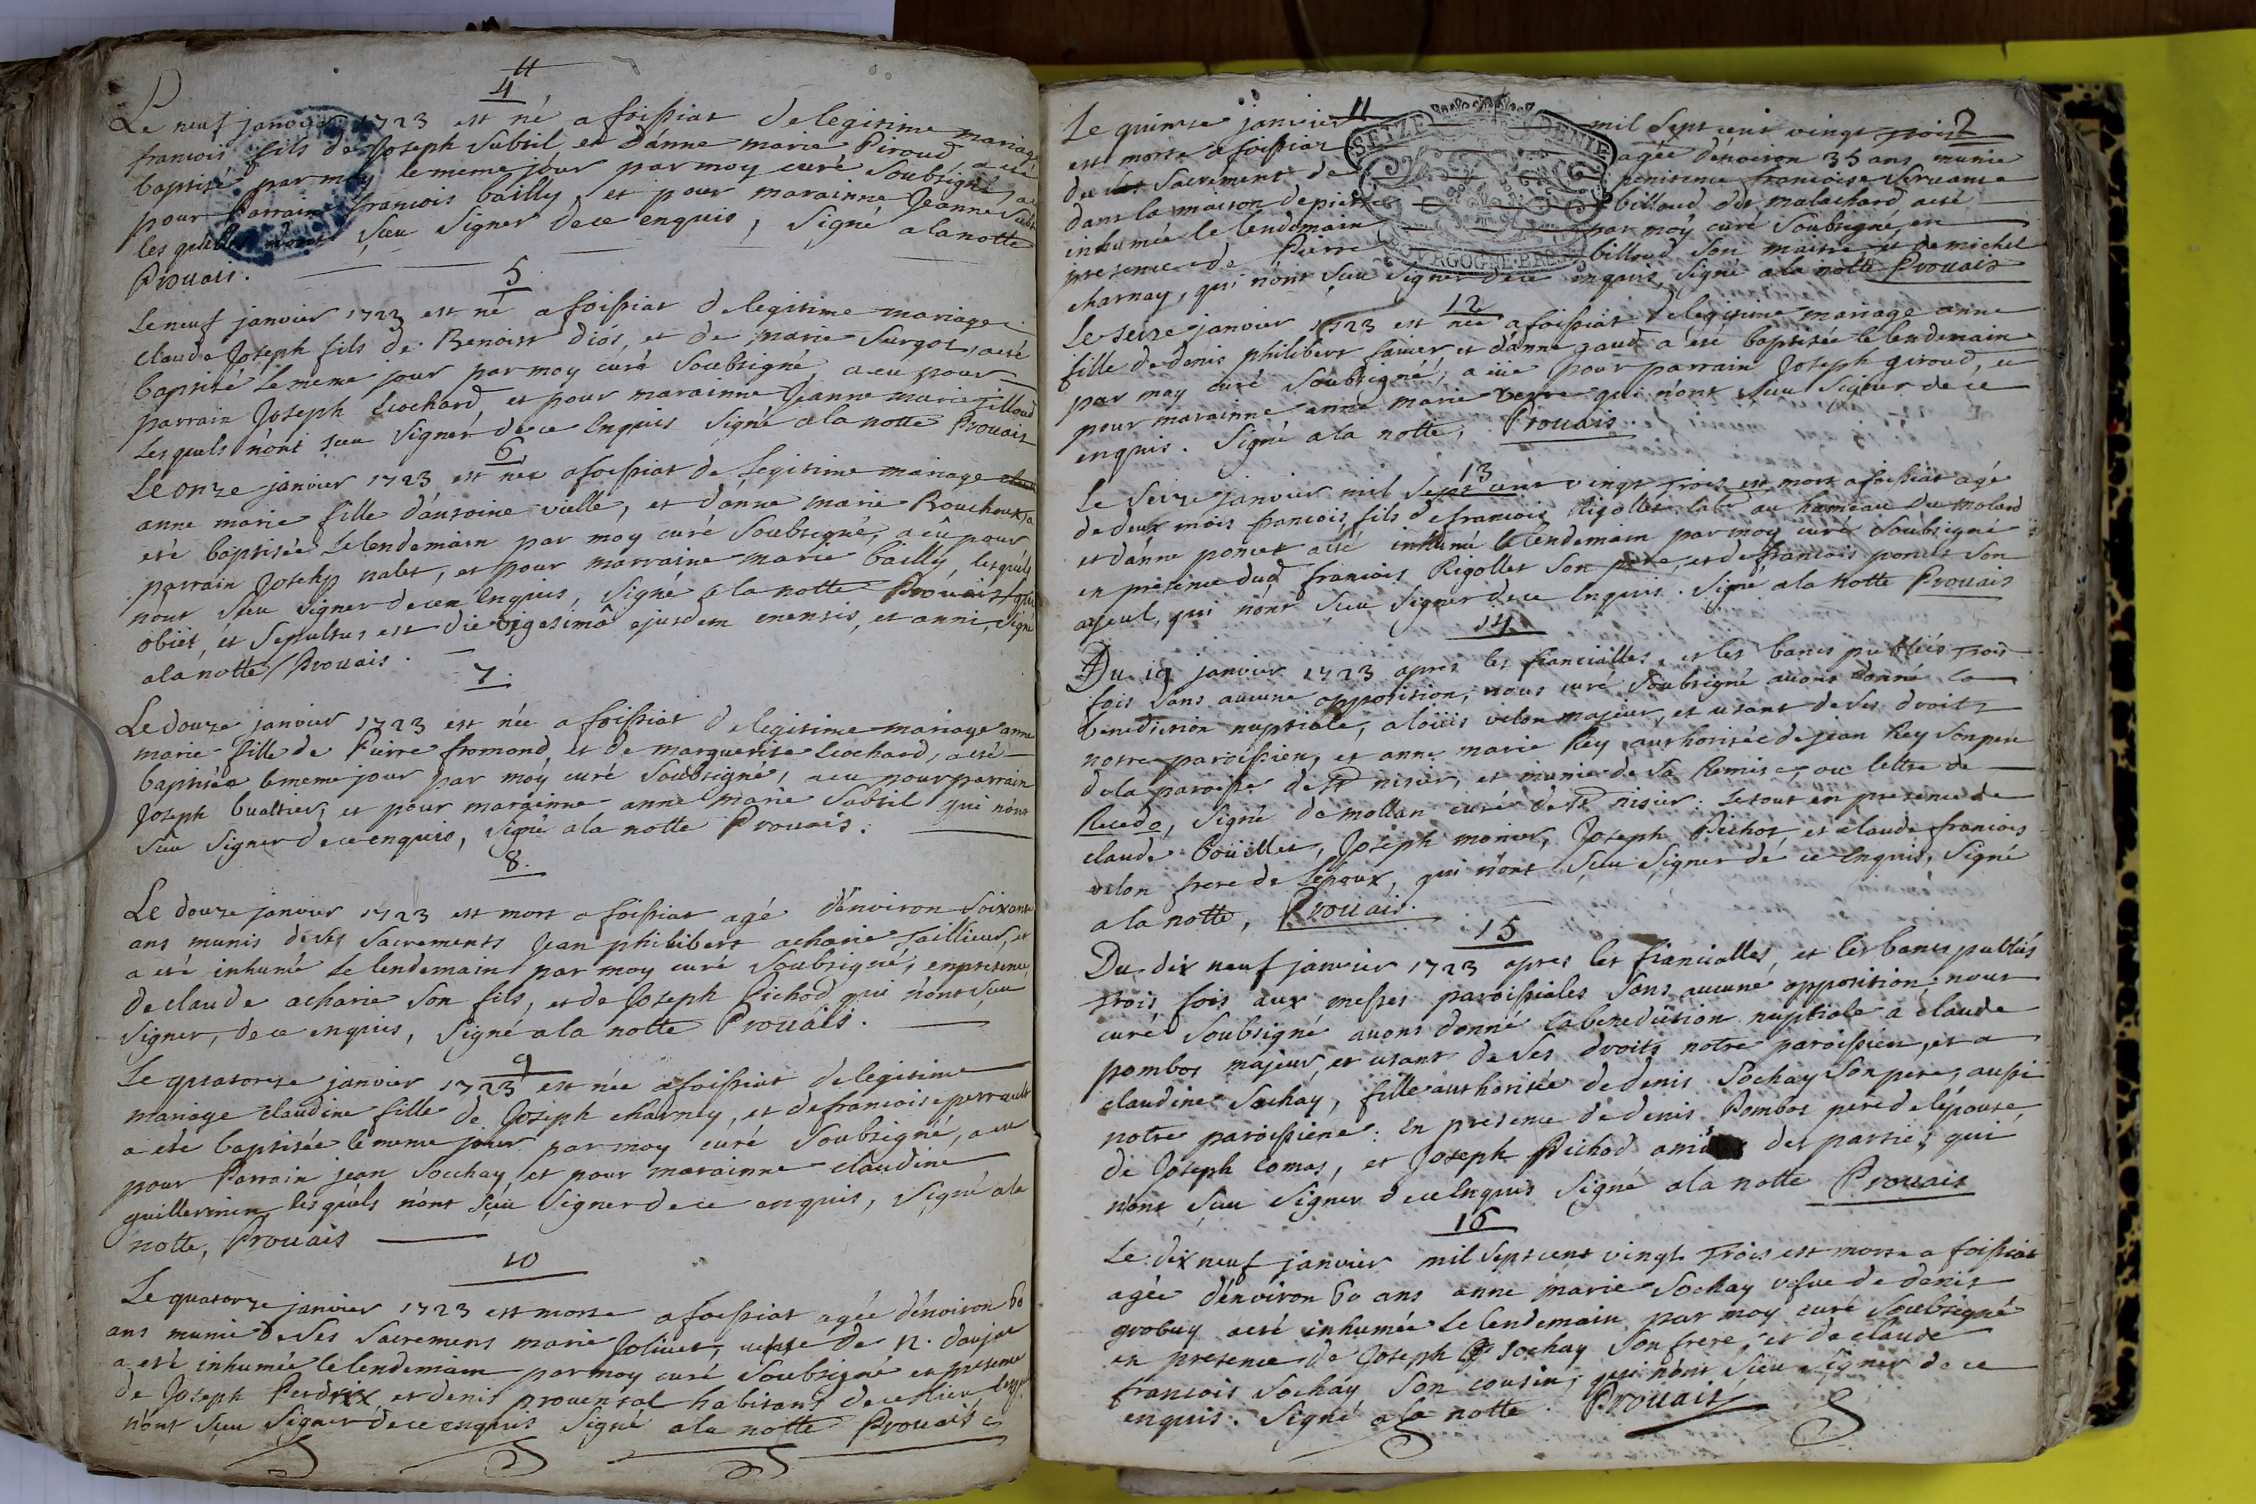 4
Le neuf janvier 1723 est né a foissiat de legitime mariage
francois fils de Joseph Subtil et d'anne marie Peroud a eté
baptisé par moy le meme jour par moy curé Soubsigné, a eu
pour Parrain francois bailly, et pour marainne Jeanne Subtil
les quels n'ont Sceu Signer de ce enquis, Signé a la notte
Prouais.
5
Le neuf janvier 1723 est né a foissiat de legitime mariage
claude Joseph fils de Benoist diós, et de marie Surgot, a eté
baptisé le meme jour par moy curé Soubsigné, a eu pour
parrain Joseph Cochard, et pour marainne Jeanne marie Tilloud
Les quels n'ont sceu Signer de ce Enquis Signé a la notte Prouais
6
Le onze janvier 1723 est née a foissiat de Legitime mariage
anne marie fille d'antoine vielle, et d'anne marie Bouchoux, a
eté baptisée Le lendemain par moy curé Soubsigné, a eû pour
parrain Josehp nalet, et pour marraine marie bailly, lesquels
n'ont Sceu Signer de ce Enquis, Signé a la notte Prouais
obiit, et Sepultus est die vigesimâ ejusdem mensis, et anni, Signé
a la notte / Prouais.
7.
Le douze janvier 1723 est née a foissiat de legitime mariage anne
marie fille de Pierre fromond, et de marguerite Cochard, a eté
baptisée le meme jour par moy curé Soubsigné, a eu pour parrain
Joseph bualtier, et pour marainne anne marie Subtil qui n'ont
Sceu Signer de ce enquis, Signé a la notte Prouais.
8.
Le douze janvier 1723 est mort a foissiat agé d'environ Soixante
ans munis de Ses Sacrements Jean philibert acharie Taillieur, et
a eté inhumé Le lendemain par moy curé Soubsigné, en presence
de claude acharie Son fils, et de Joseph Pichod qui n'ont Sceu
Signer, de ce enquis, Signé a la notte Prouais.
9
Le quatorze janvier 1723 est née a foissiat de legitime
mariage claudine fille de Joseph charney, et de francoise perrault
a eté baptisée le meme jour par moy curé Soubsigné, a eu
pour Parrain jean Sochay, et pour marainne claudine
guillermin, les quels n'ont Sceu Signer de ce enquis, Signé a la
notte, Prouais
10
Le quatorze janvier 1723 est morte a foissiat agée d'environ 60
ans munie de Ses Sacremens marie Jolivet, veufve de n. daujat
a eté inhumée le lendemain par moy curé Soubsigné en presence
de Joseph Perdrix et denis provensal habitans de ce lieu lesq.
n'ont Sceu Signer de ce enquis Signé a la notte Prouais
2
11
Le quinze janvier mil Sept cent vingt trois
est morte a foissiat agée d'environ 35 ans munie
du Sacrement de penitence francoise Servante
dans la maison de pierre billoud de malachard a eté
inhumée le lendemain par moy curé Soubsigné, en
presence de Pierre billoud Son maitre et de michel
charnay, qui n'ont Sceu Signer de ce enquis, Signé a la notte Prouais
SEIZE DENIE
BOURGOGNE BRES
12
Le Seize janvier 1723 est née a foissiat de legitime mariage anne
fille de denis philibert favier et d'anne gaud a eté baptisée le lendemain
par moy curé Soubsigné, a eüe pour parrain Joseph giroud, et
pour marainne anne marie verre qui n'ont Sceu Signer de ce
enquis. Signé a la notte, Prouais.
13
Le Seize janvier mil Sept cent vingt trois est mort a foissiat agé
de deux mois francois fils de francois Rigollet lab. au hameau du Molard
et d'anne poncet a eté inhumé le lendemain par moy curé Soubsigné
en presence dud. francois Rigollet Son pere, et de francois poncet Son
ayeul, qui n'ont Sceu Signer de ce Enquis. Signé a la Notte Prouais
14
Du 19 janvier 1723 apres les fiancialles, et les bancs publiés trois
fois Sans aucune opposition, nous curé Soubsigné avons donné la
benediction nuptiale, a loüis velon majeur, et usant de Ses droits
notre paroissien, et anne marie Rey authorisée de jean Rey Son pere
de la paroisse de St nisier, et munie de Sa Remise, ou lettre de
Recedo, Signé de mollan curé de St nisier. Le tout en presence de
claude boüillet, Joseph monier, Joseph Pichod, et claude francois
velon frere de l'epoux, qui n'ont Sceu Signer de ce Enquis, Signé
a la notte, Prouais.
15
Du dix neuf janvier 1723 apres les fiancialles, et les bancs publiés
trois fois aux messes paroissiales Sans aucune opposition, nous
curé Soubsigné avons donné la benediction nuptiale a claude
pombot majeur, et usant de Ses droits notre paroissien, et a
claudine Sochay, fille authorisée de denis Sochay Son pere, aussi
notre paroissiene: En presence de denis Pombot pere de l'épouse,
de Joseph comas, et Joseph Pichod amis des parties, qui
n'ont Sceu Signer de ce Enquis Signé a la notte Prouais
16
Le dix neuf janvier mil Sept cent vingt Trois est morte a foissiat
agée d'environ 60 ans anne marie Sochay vefve de denis
grobuy a eté inhumée Le lendemain par moy curé Soubsigné
en presence de Joseph Sochay Son frere, et de claude
francois Sochay Son cousin, qui n'ont Sceu Signer de ce
enquis. Signé a la notte. Prouais